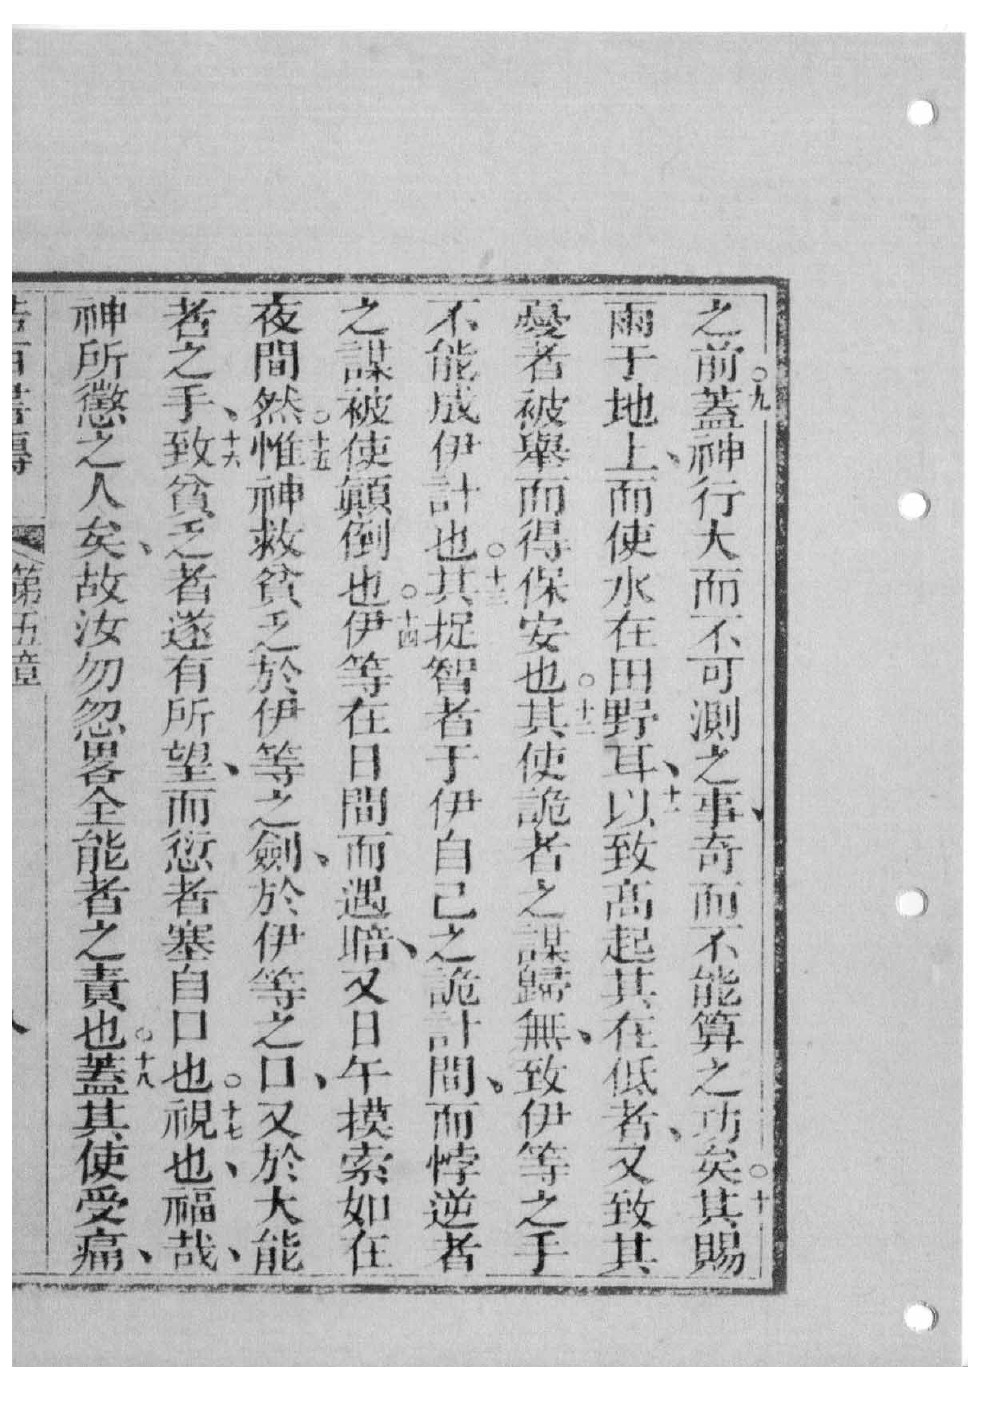 之前○九蓋神行大而不可測之事、奇而不能算之功矣○十其賜
雨于地上、而使水在田野耳、十一以致高起其在低者、又致其
憂者被舉而得保安也○十二其使詭者之謀歸無、致伊等之手
不能成伊計也○十三其捉智者于伊自己之詭計間、而悖逆者
之謀被使顚倒也○十四伊等在日間而遇暗、又日午摸索如在
夜間然○十五惟神救貧乏於伊等之劍、於伊等之口、又於大能
者之手、十六致貧乏者遂有所望、而愆者塞自口也○十七視也、福哉、
神所懲之人矣、故汝勿忽畧全能者之責也○十八蓋其使受痛、
第五章